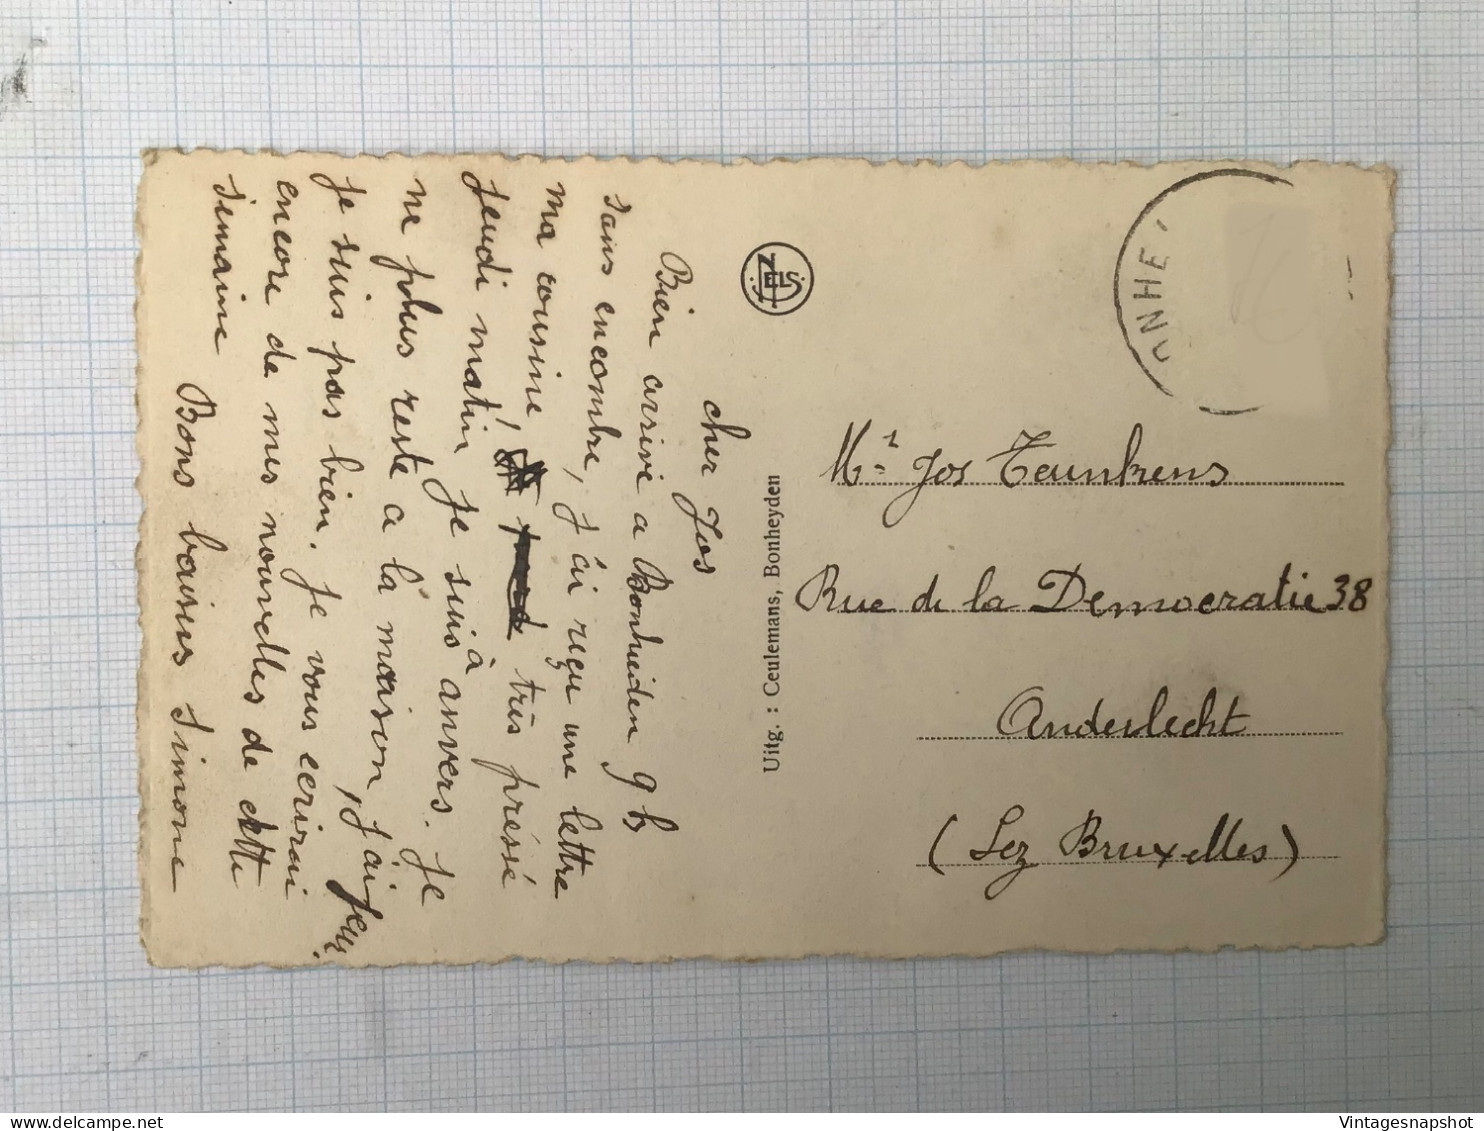 cher Jos
Bien arrivé a Bonheiden 9 h
sans encombre, j'ai reçu une lettre
ma cousine, très présié
jeudi matin je suis à anvers. Je
ne plus reste a la maison, j'ai peur
Je suis pas bien. Je vous ecrirai
encore de mes nouvelles de cette
semaine
Bons baisers Simone
NELS
Uitg. : Ceulemans, Bonheyden
ONHE
Mr Jos Teunkens
Rue de la Democratie 38
Anderlecht
(Lez Bruxelles)
Vintagesnapshot
delcampe.net